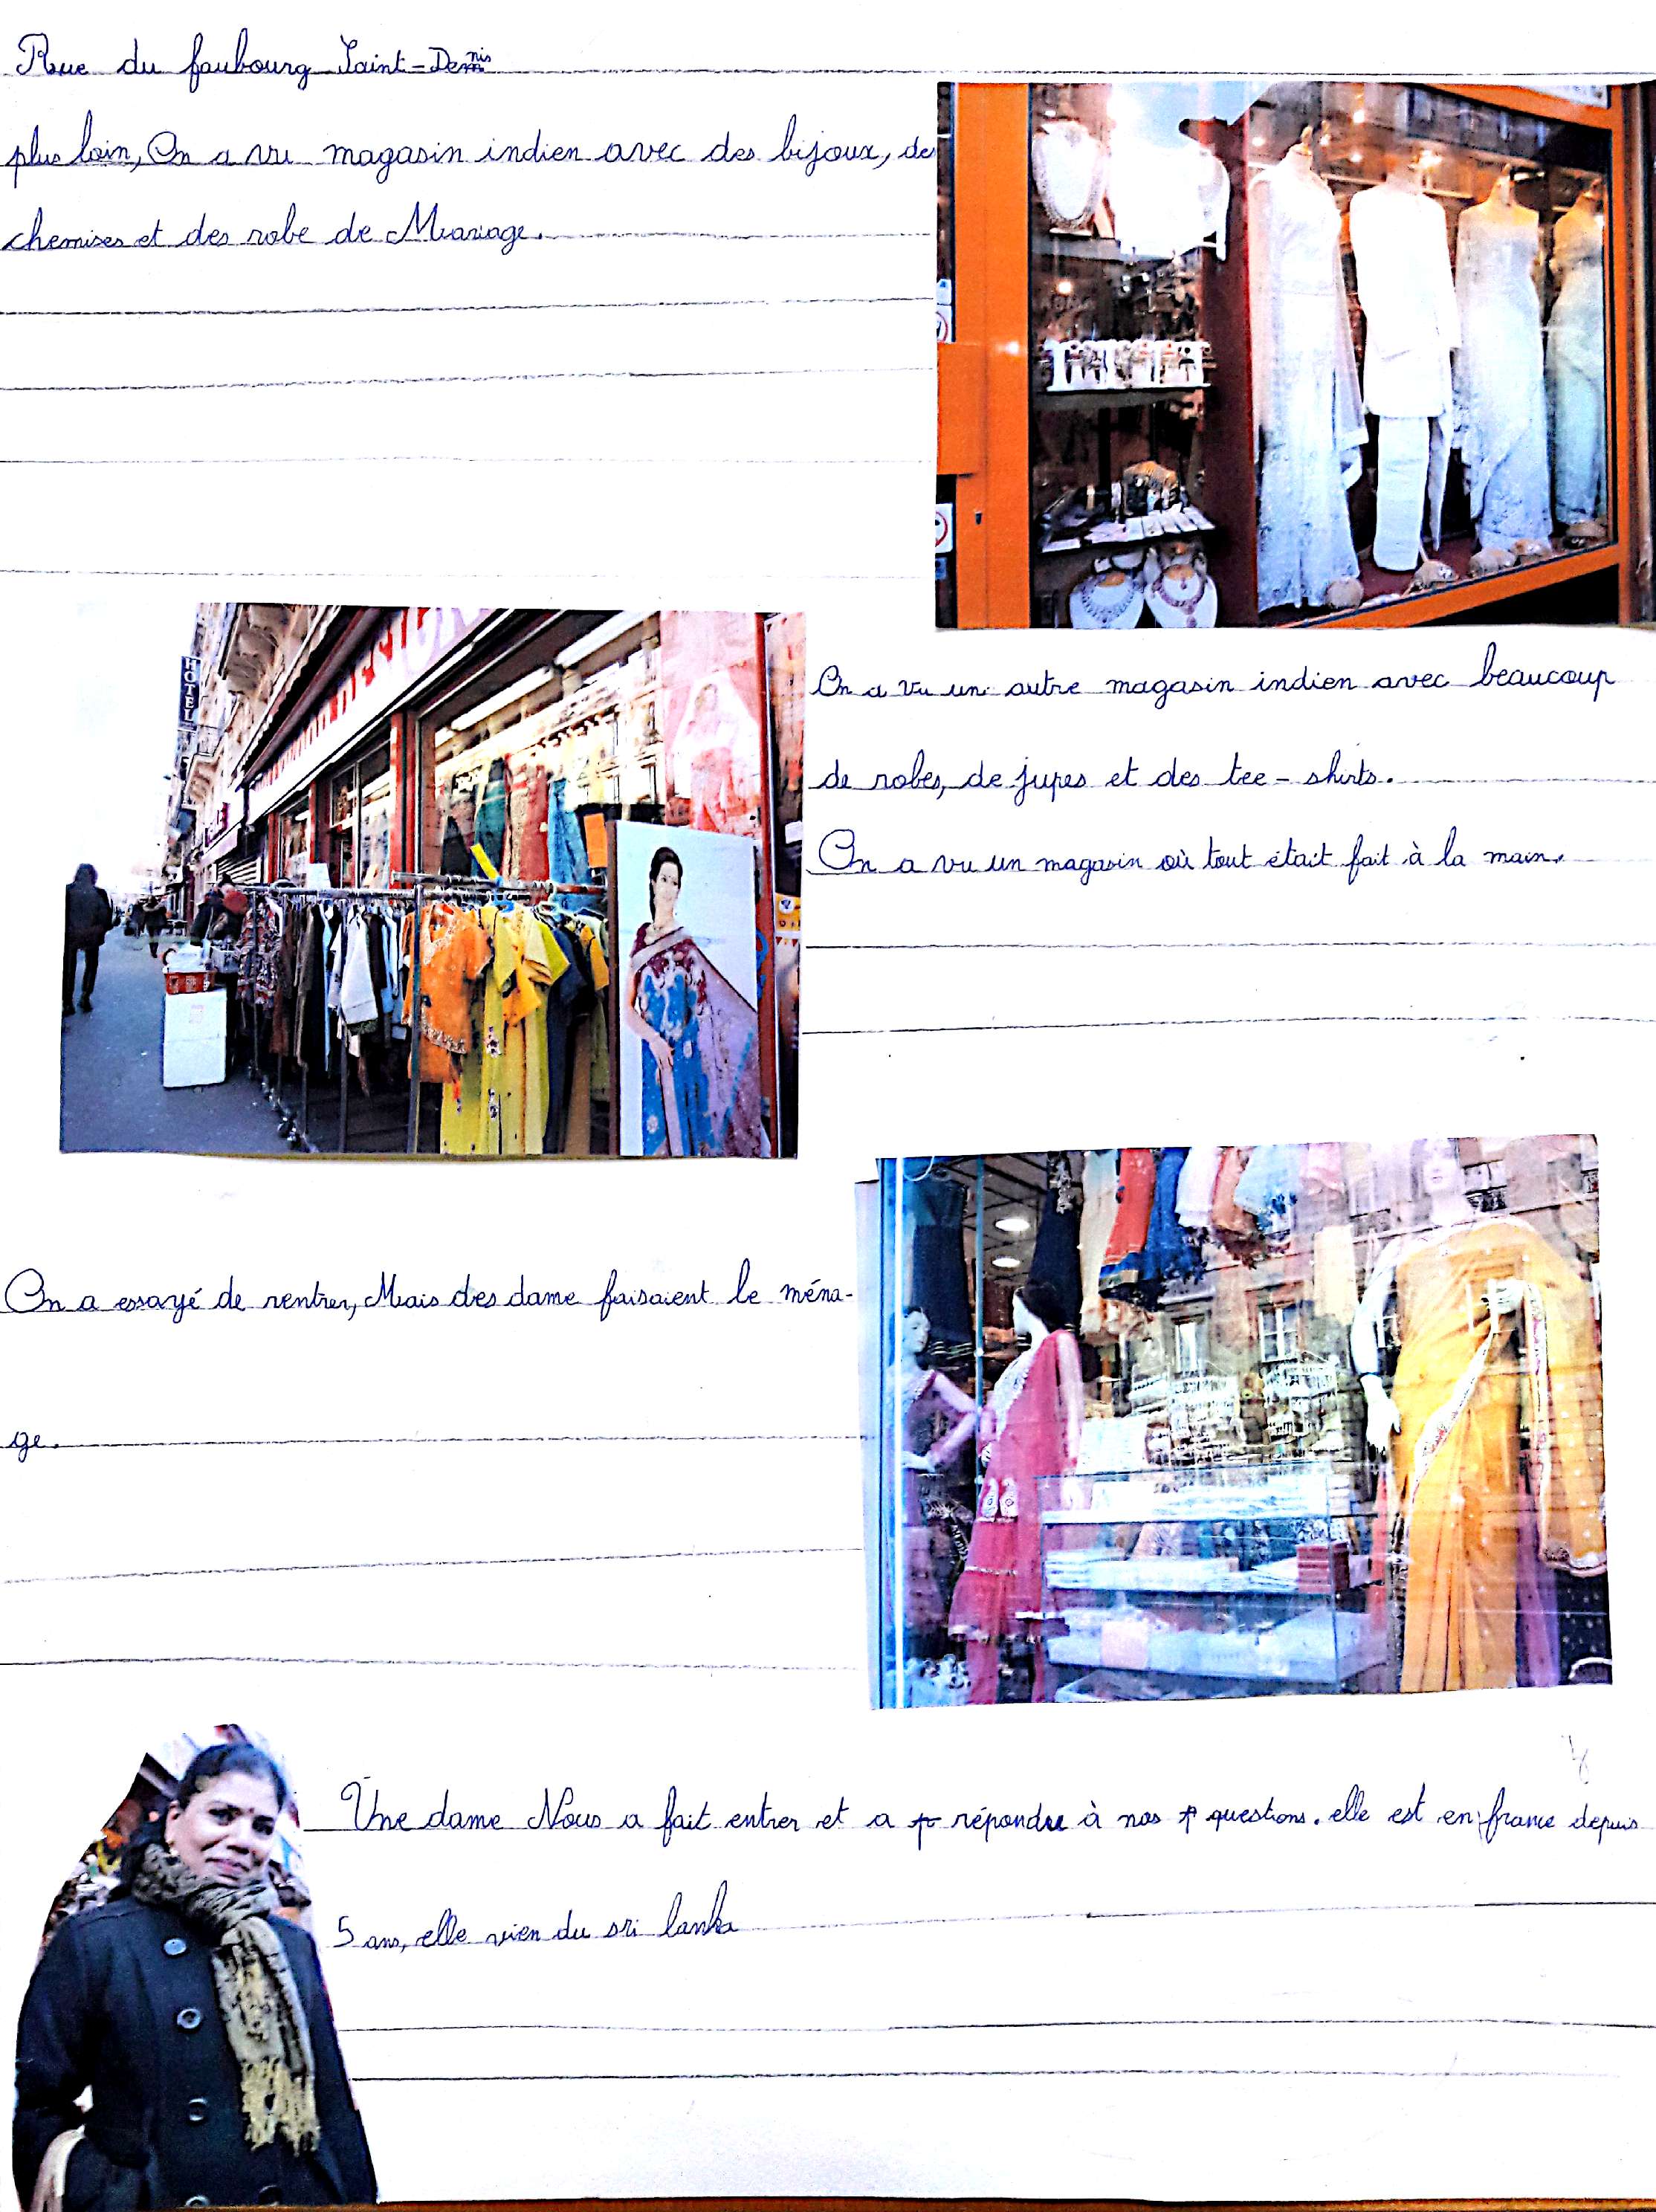 Rue du faubourg Saint-Denis
plus loin, On a vu magasin indien avec des bijoux, des
chemises et des robe de Mariage.
HOTEL
On a vu un autre magasin indien avec beaucoup
de robes, de jupes et des tee-shirts.
On a vu un magasin où tout était fait à la main.
On a essayé de rentrer, Mais des dame faisaient le ména-
ge.
Une dame Nous a fait entrer et a répondu à nos questions. elle est en france depuis
5 ans, elle vien du sri lanka